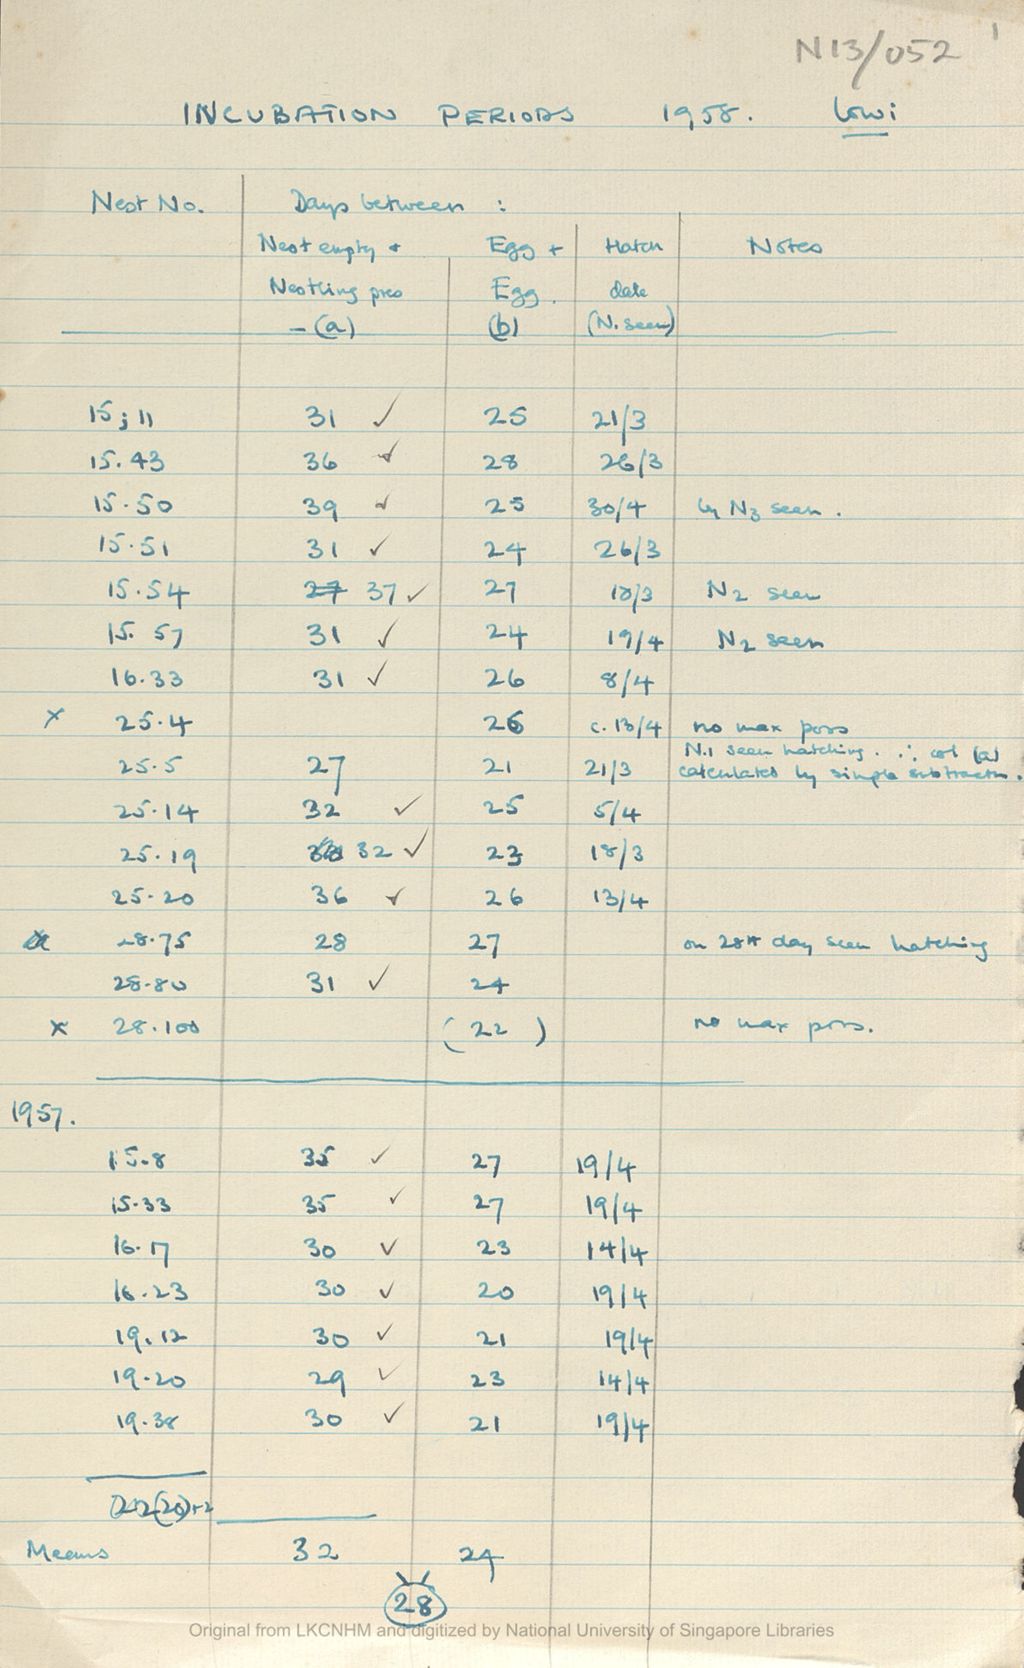 N13/052 1
INCUBATION PERIODS 1958. Lowi
Nest No. Days between :
Nest empty + Egg + Hatch Notes
Nestling pres Egg. date
- (a) (b) (N. seen)
15; 11 31 ✓ 25 21/3
15.43 36 ✓ 28 26/3
15.50 39 ✓ 25 30/4 by N3 seen.
15.51 31 ✓ 24 26/3
15.54 27 37 ✓ 27 18/3 N2 seen
15.57 31 ✓ 24 19/4 N2 seen
16.33 31 ✓ 26 8/4
x 25.4 26 c. 13/4 no max poss
N.1 seen hatching. ∴ col (a)
25.5 27 21 21/3 calculated by simple subtractn.
25.14 32 ✓ 25 5/4
25.19 32 ✓ 23 18/3
25.20 36 ✓ 26 13/4
28.75 28 27 on 28th day seen hatching
28.80 31 ✓ 24
x 28.100 (22) no max poss.
1957.
15.8 35 ✓ 27 19/4
15.33 35 ✓ 27 19/4
16.17 30 ✓ 23 14/4
16.23 30 ✓ 20 19/4
19.12 30 ✓ 21 19/4
19.20 29 ✓ 23 14/4
19.38 30 ✓ 21 19/4
Means 32 24
28
Original from LKCNHM and digitized by National University of Singapore Libraries